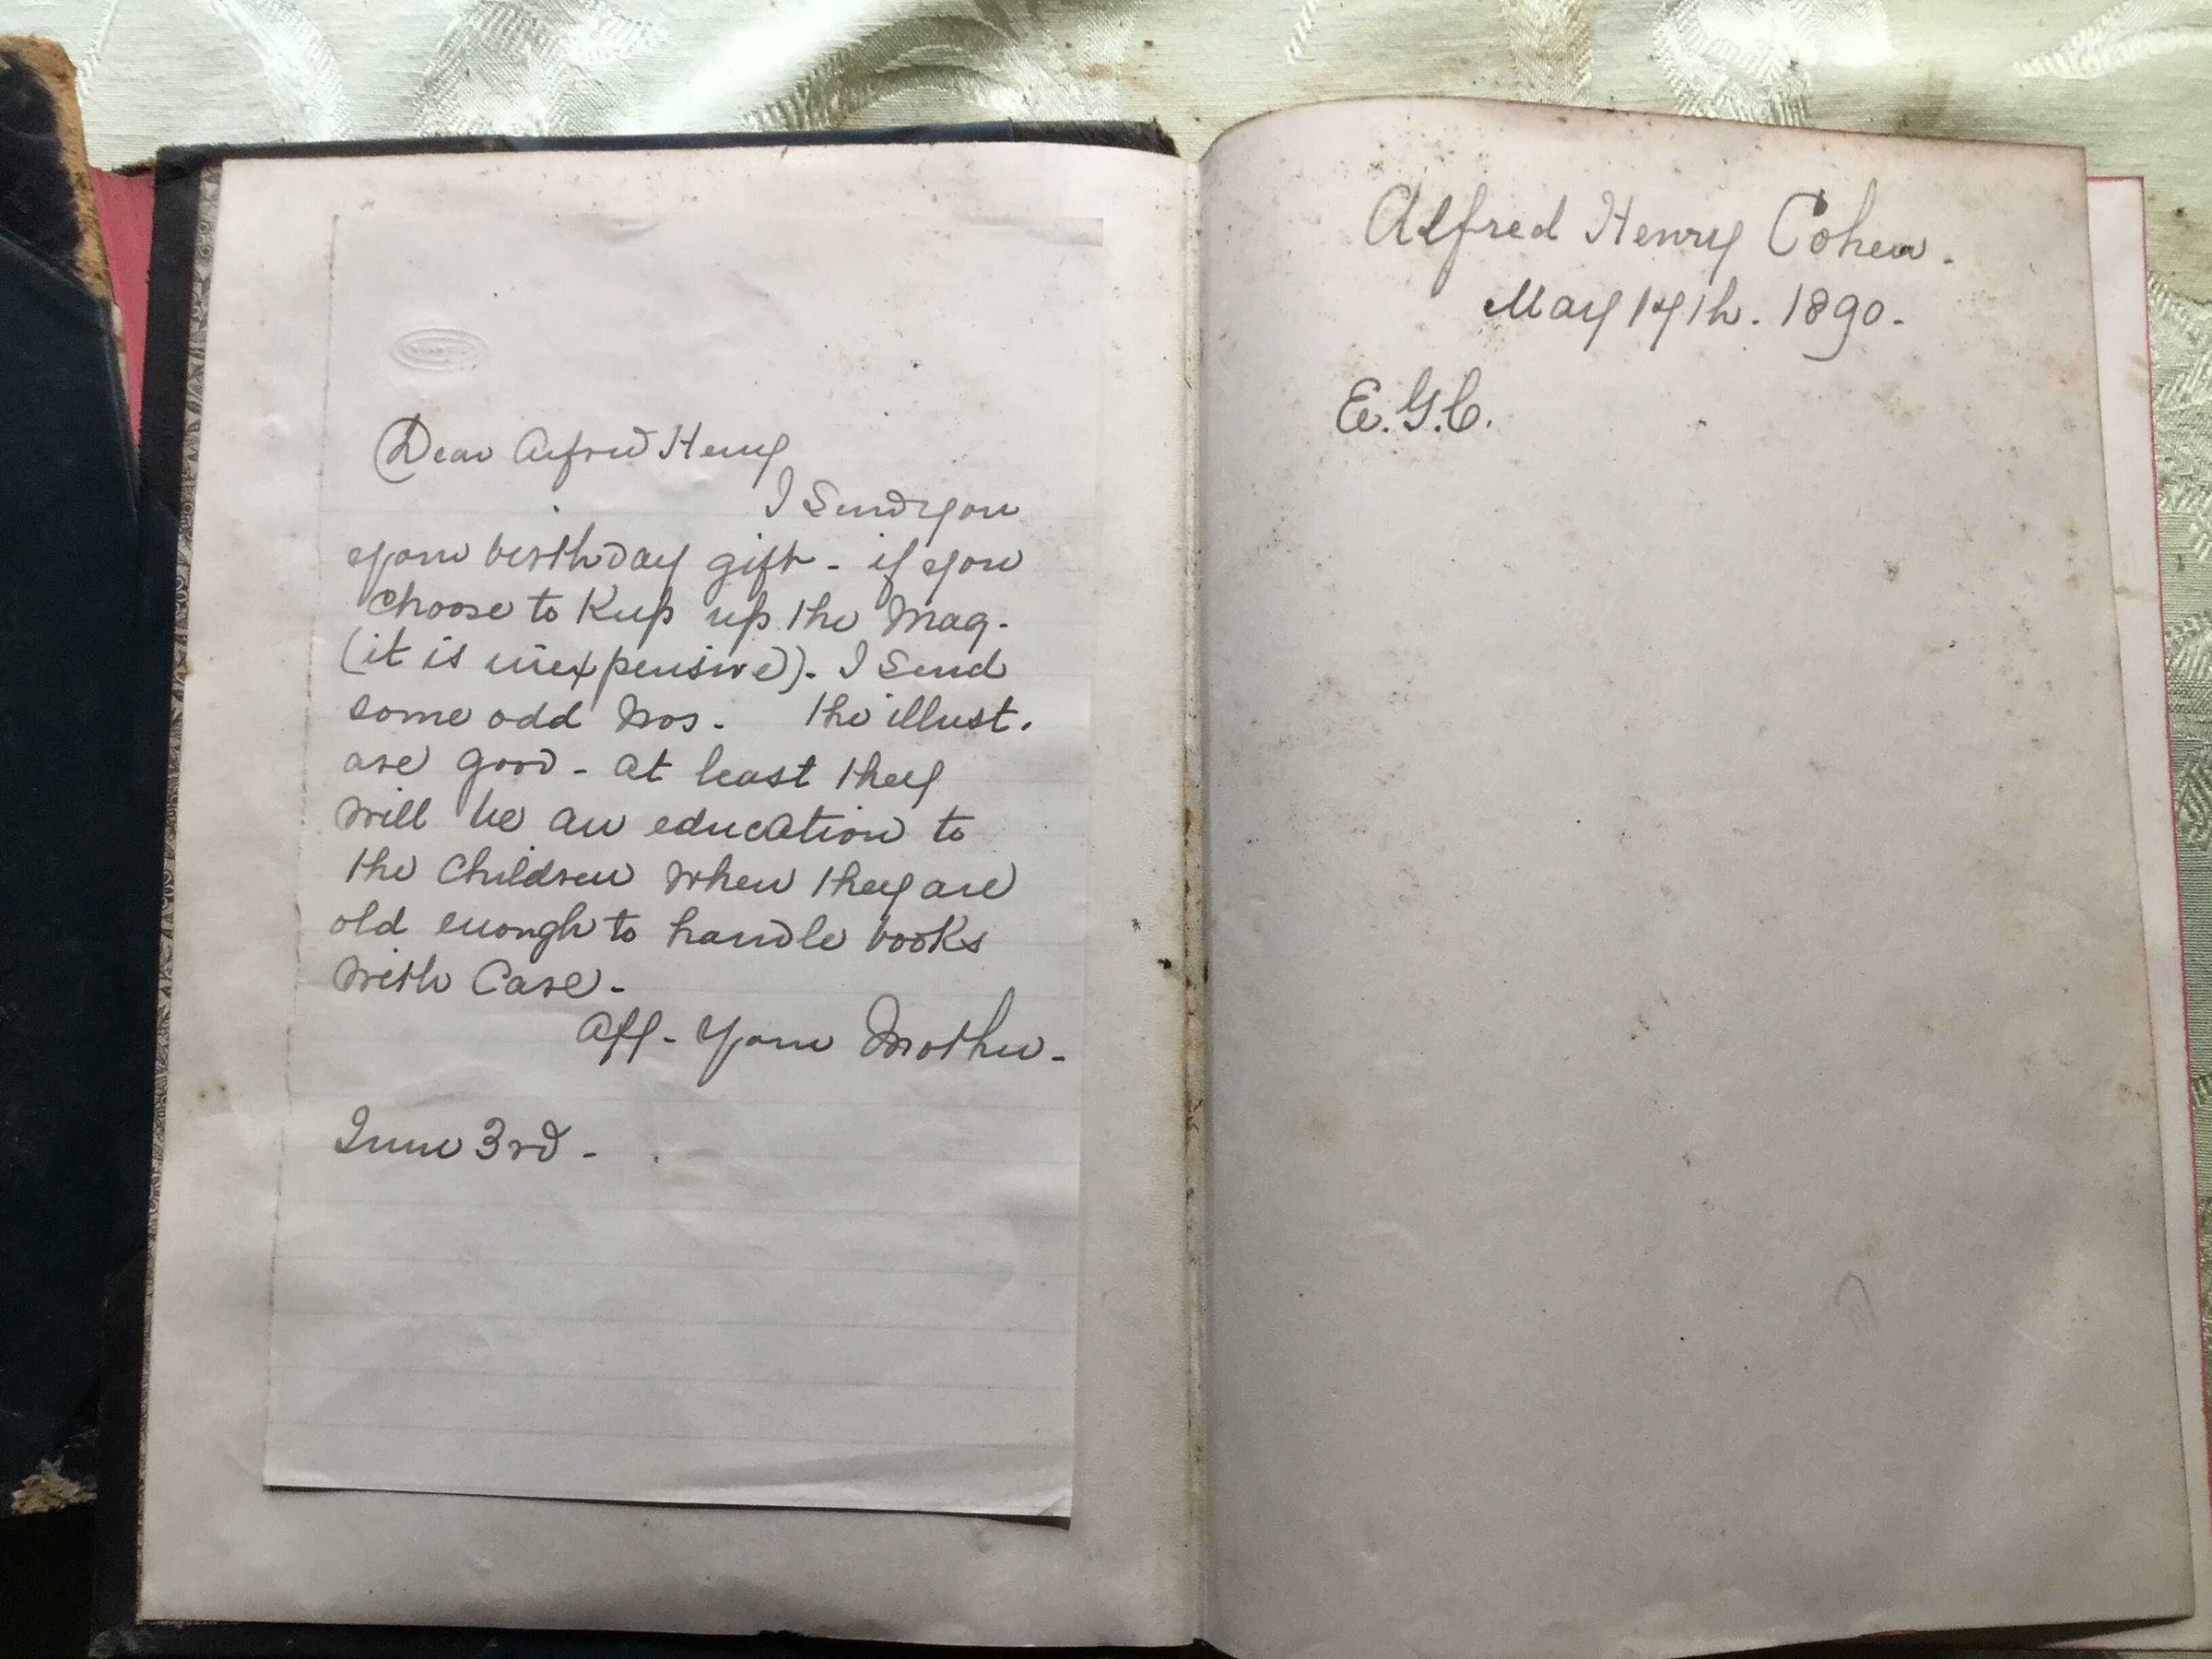 Dear Alfred Henry
I send you
your birthday gift - if you
choose to keep up the Mag.
(it is inexpensive). I send
some odd Nos. the illust.
are good - at least they
will be an education to
the children when they are
old enough to handle books
with care -
Aff - Your Mother -
June 3rd -
Alfred Henry Cohen.
May 14th. 1890.
E. G. C.